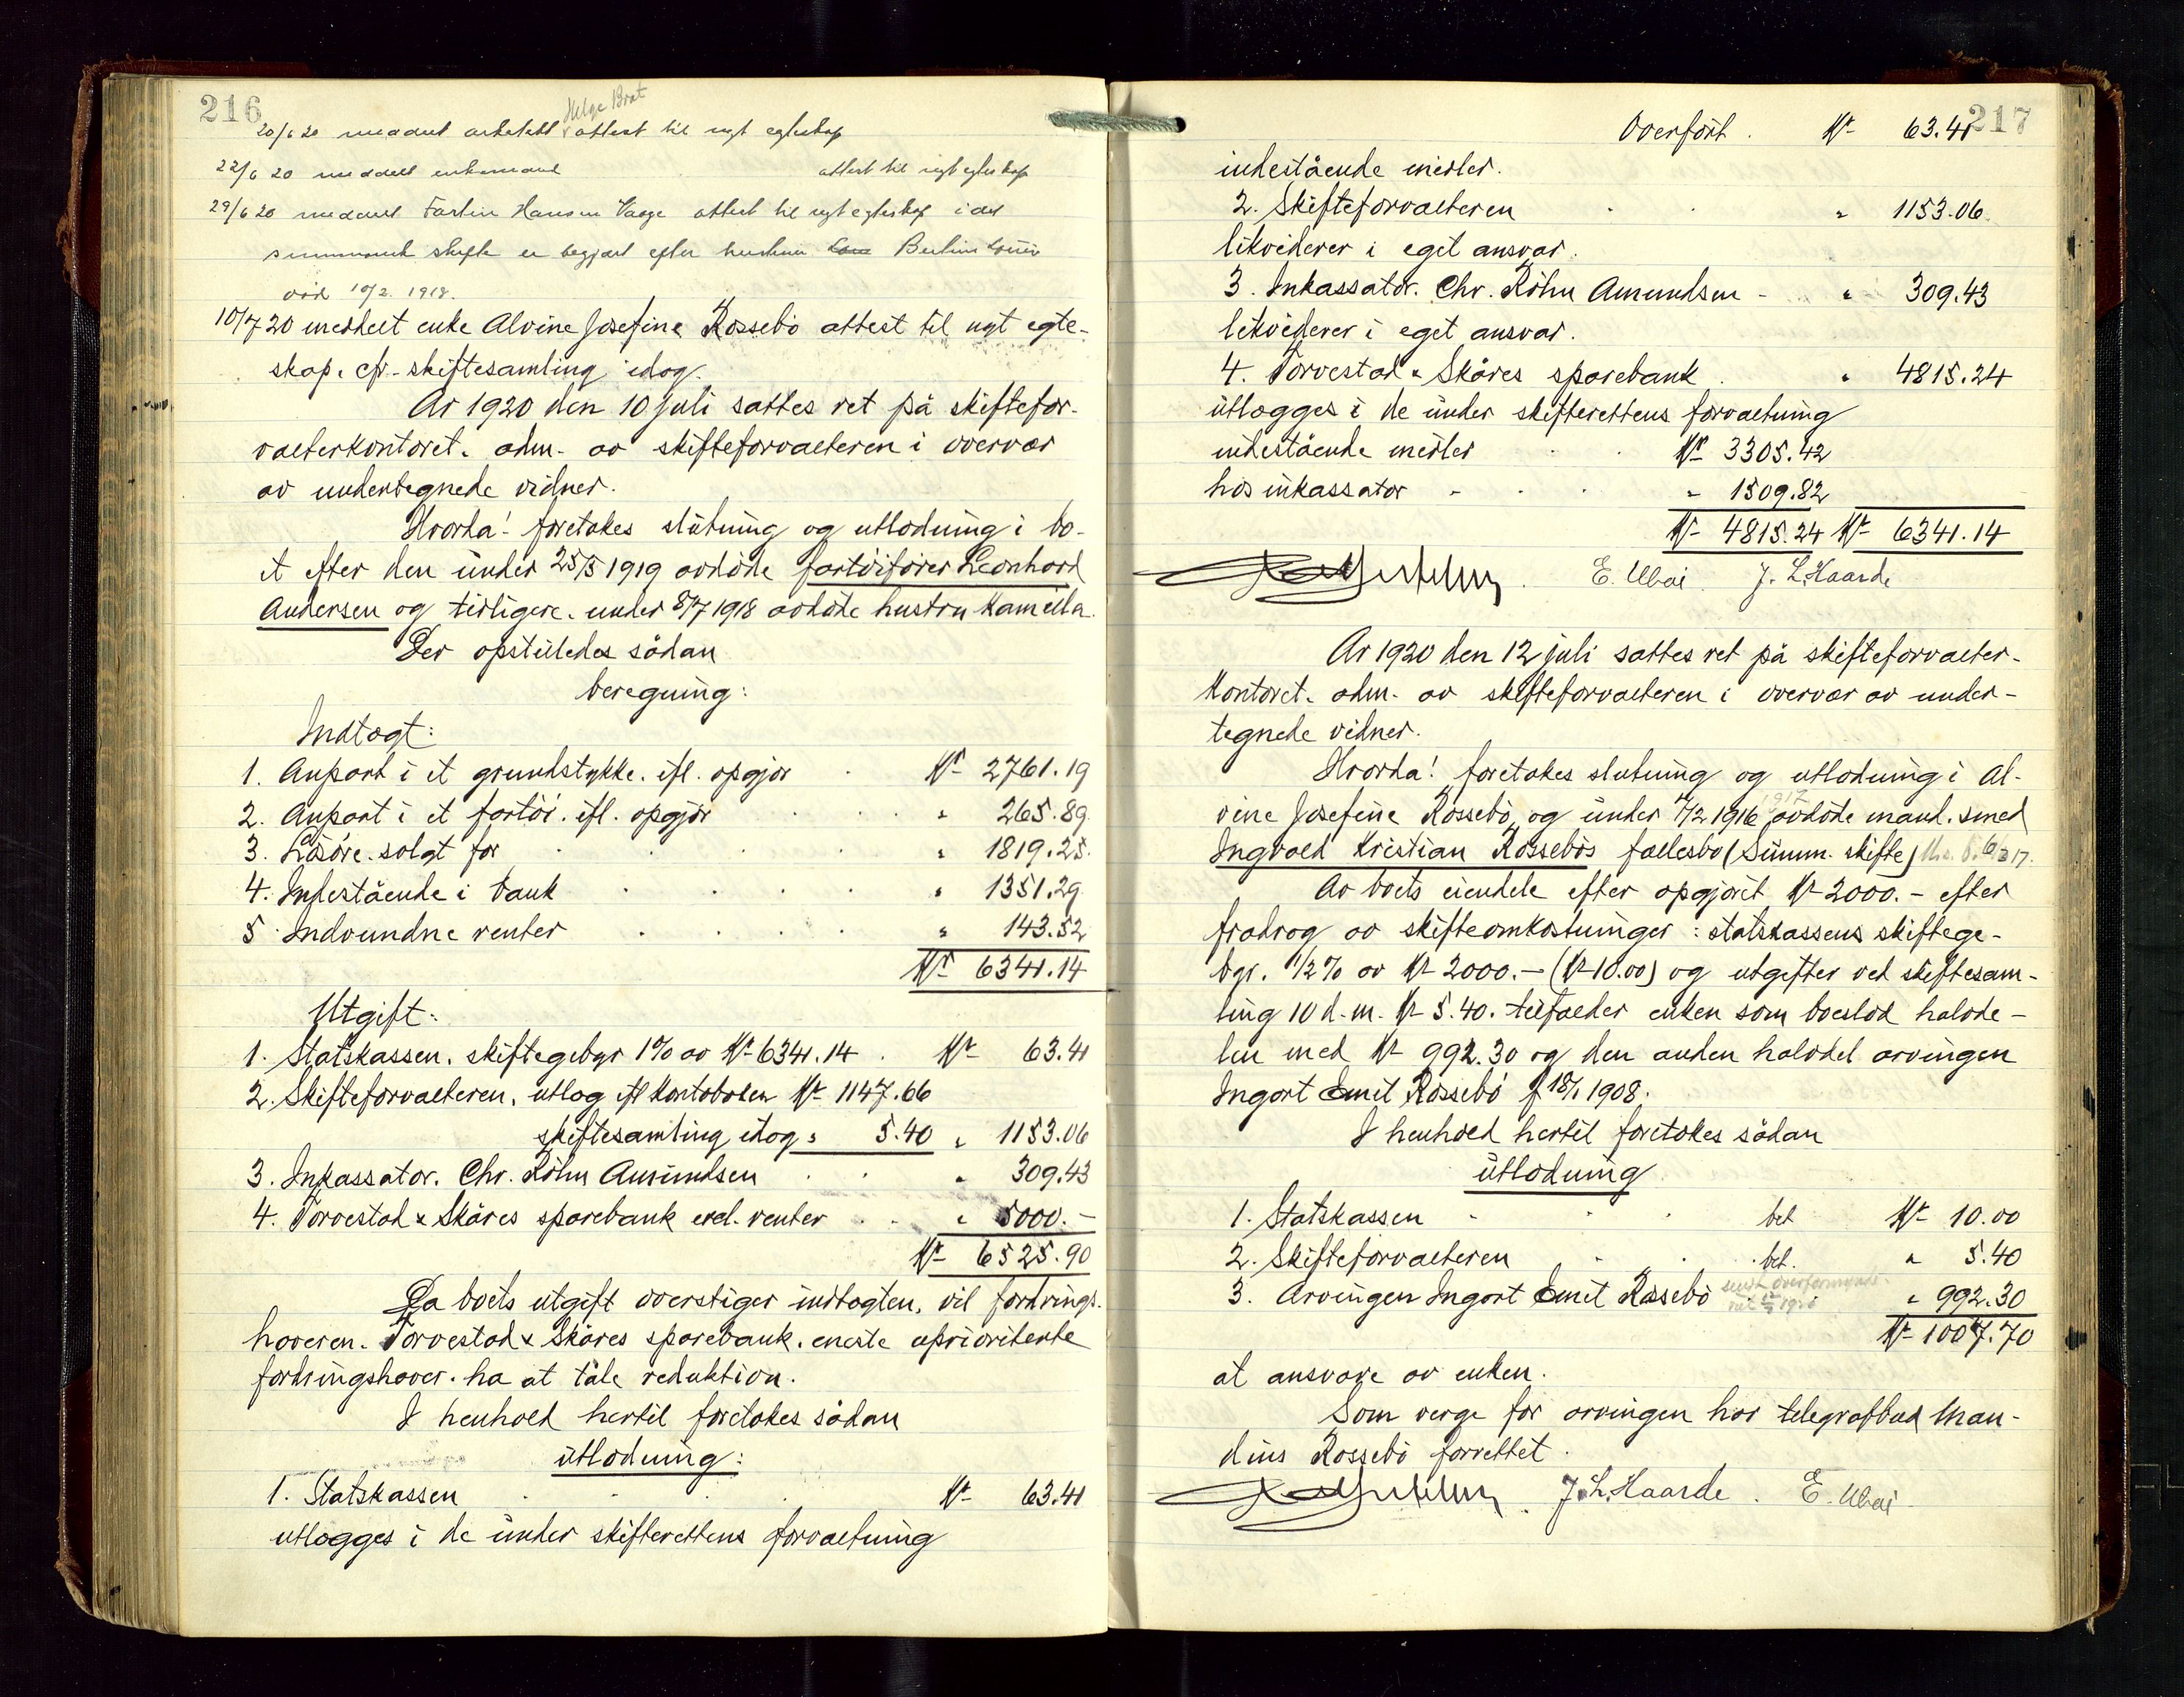 216
Helge Brat
20/6 20 meddelt arbeider attest til nyt egteskap
22/6 20 meddelt enkemand attest til nyt egteskap
29/6 20 meddelt Hansen Vaage attest til nyt egteskap i det
summarisk skifte er begjært efter hustruen Berlin
død 10/2 1918.
10/7 20 meddelt enke Alvine Josefine Røssebø attest til nyt egte-
skap. cfr. skiftesamling idag.
År 1920 den 10 juli sattes ret på skiftefor-
valterkontoret. adm. av skifteforvalteren i overvær
av undertegnede vidner.
Hvorda! foretokes slutning og utlodning i bo-
et efter den under 25/5 1919 avdøde fartøifører Leonhard
Andersen og tidligere. under 8/7 1918 avdøde hustru Kamilla.
Der opstilledes sådan
beregning:
Indtægt:
1. Anpart i et grundstykke. ifl. opgjør Kr 2761.19
2. Anpart i et fartøi. ifl. opgjør " 265.89
3. Løsøre. solgt for " 1819.25
4. Indestående i bank " 1351.29
5. Indvundne renter " 143.52
Kr 6341.14
Utgift:
1. Statskassen. skiftegebyr 1% av Kr 6341.14 Kr 63.41
2. Skifteforvalteren. utlæg ifl kontoboken Kr 1147.66
skiftesamling idag " 5.40 " 1153.06
3. Inkassator. Chr. Røhn Amundsen " 309.43
4. Torvestad & Skåres sparebank excl. renter " 5000.-
Kr 6525.90
Da boets utgift overstiger indtægten, vil fordrings-
haveren. Torvestad & Skåres sparebank. eneste uprioriterte
fordringshaver. ha at tåle reduktion.
I henhold hertil foretokes sådan
utlodning:
1. Statskassen Kr 63.41
utlægges i de under skifterettens forvaltning
217
Overført. Kr 63.41
indestående midler.
2. Skifteforvalteren " 1153.06
likviderer i eget ansvar.
3. Inkassator. Chr. Røhn Amundsen - " 309.43
likviderer i eget ansvar.
4. Torvestad & Skåres sparebank. " 4815.24
utlægges i de under skifterettens forvaltning
indestående midler Kr 3305.42
hos inkassator " 1509.82
Kr 4815.24 Kr 6341.14
J. L. Haarde
År 1920 den 12 juli sattes ret på skifteforvalter-
kontoret. adm. av skifteforvalteren i overvær av under-
tegnede vidner.
Hvorda! foretokes slutning og utlodning i Al-
vine Josefine Røssebø og under 4/2 1916 1917 avdøde mand. smed
Ingvald Kristian Røssebøs fællesbo (Summ. skifte)
Av boets eiendele efter opgjøret Kr 2000.- efter
fradrag av skifteomkostninger: statskassens skiftege-
byr. 1/2% av Kr 2000.- (Kr 10.00) og utgifter ved skiftesam-
ling 10 d.m. Kr 5.40. tilfalder enken som boeslod halvde-
len med Kr 992.30 og den anden halvdel arvingen
Ingart Emil Røssebø f 18/1 1908.
I henhold hertil foretokes sådan
utlodning
1. Statskassen - bet Kr 10.00
2. Skifteforvalteren bet. " 5.40
3. Arvingen Ingart Emil Røssebø " 992.30
Kr 1007.70
at ansvare av enken.
Som verge for arvingen har telegrafbud Man-
dius Røssebø forrettet.
J. L. Haarde.